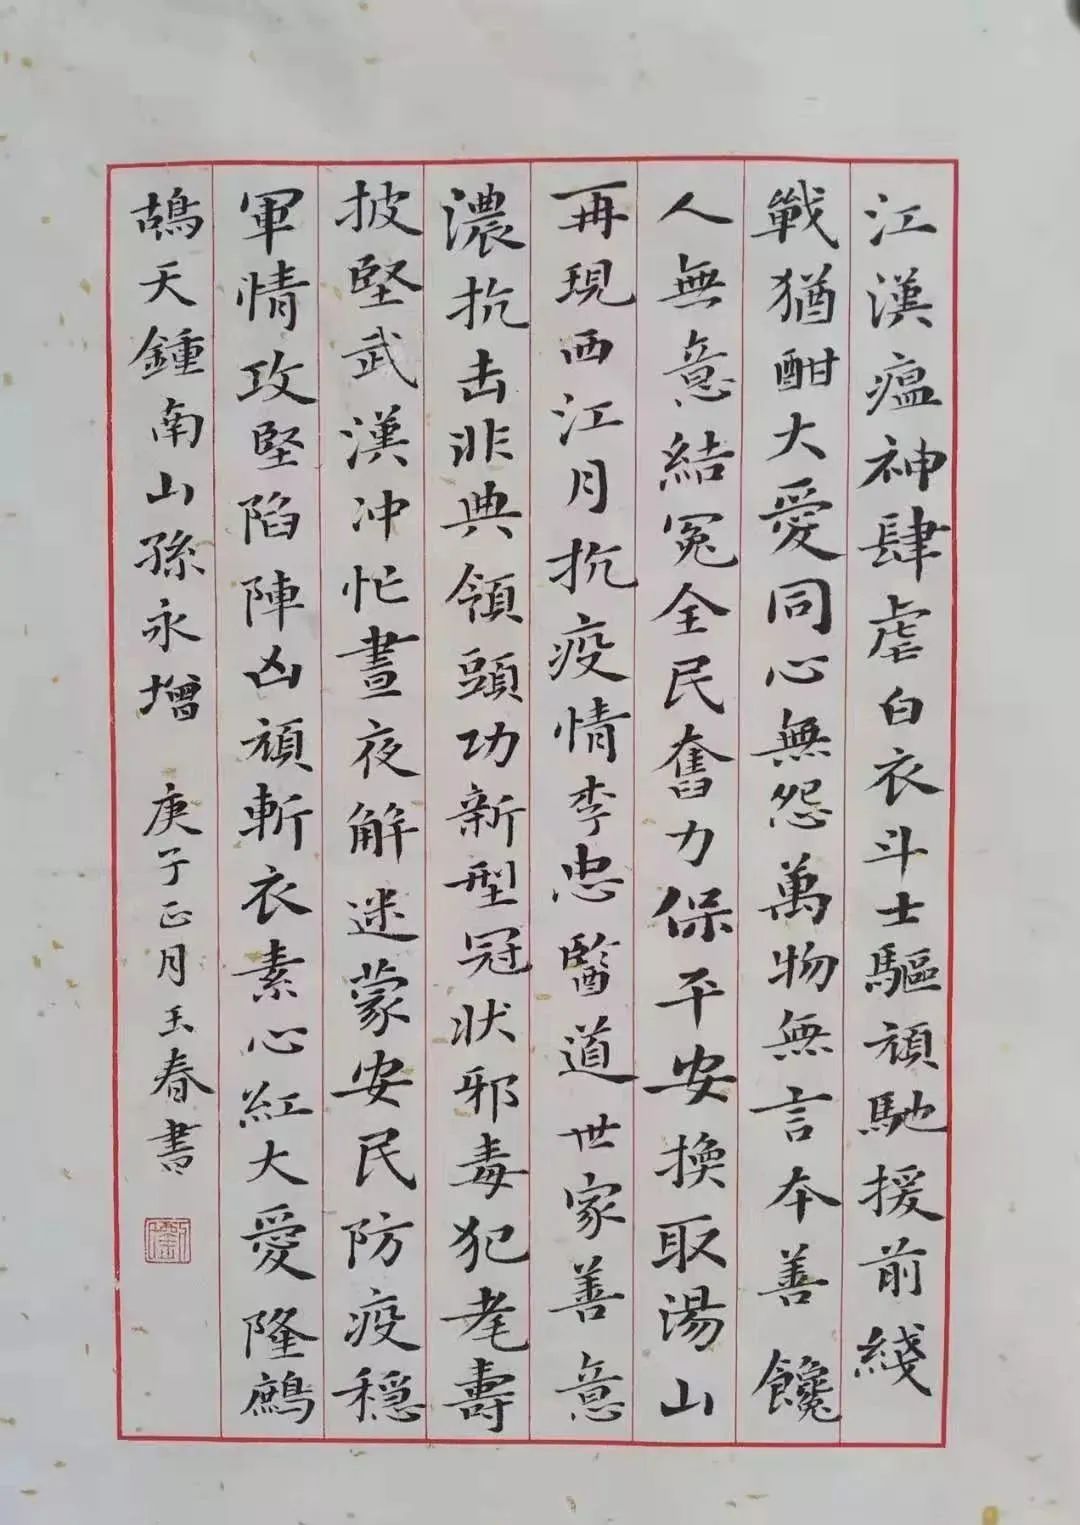 江漢瘟神肆虐白衣斗士驅頑馳援前綫
戰猶酣大愛同心無怨萬物無言本善饞
人無意結冤全民奮力保平安換取湯山
再現西江月抗疫情李忠醫道世家善意
濃抗击非典領頭功新型冠状邪毒犯耄壽
披堅武漢冲忙晝夜解迷蒙安民防疫穩
軍情攻堅陷陣凶頑斬衣素心紅大愛隆鷓
鴣天鍾南山孫永增 庚子正月玉春書